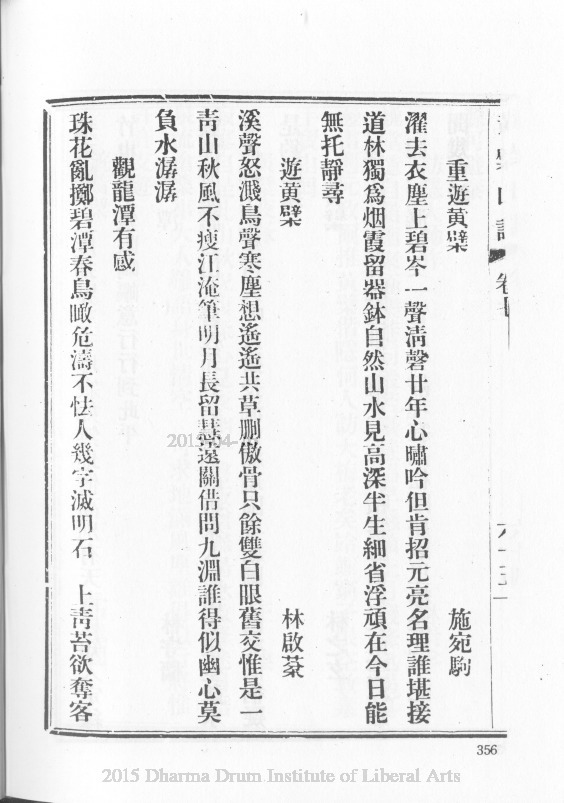 黃檗山誌 卷七
重遊黃檗 施宛駒
濯去衣塵上碧岑一聲淸磬廿年心嘯吟但肯招元亮名理誰堪接
道林獨爲烟霞留器鉢自然山水見高深半生細省浮頑在今日能
無托靜尋
遊黃檗 林啟棻
溪聲怒濺鳥聲寒塵想遙遙共草刪傲骨只餘雙白眼舊交惟是一
靑山秋風不瘦江淹筆明月長留慧遠關借問九淵誰得似幽心莫
負水潺潺
觀龍潭有感
珠花亂擲碧潭春鳥瞰危濤不怯人幾字滅明石 上靑苔欲奪客
356
2015 Dharma Drum Institute of Liberal Arts